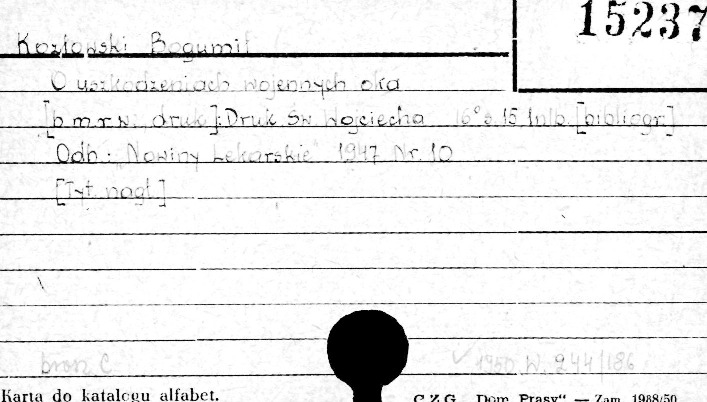 15237
Kozłowski Bogumił
O uszkodzeniach wojennych oka
[b.m.r.w. druk]: Druk. Św. Wojciecha 16° s. 15 1 nlb. [bibliogr.]
Odb.: "Nowiny Lekarskie" 1947 Nr. 10
[Tyt. nagł.]
brosz C
1950. W. 244/186
Karta do katalogu alfabet.
C.Z.G. „Dom Prasy" — Zam. 1988/50